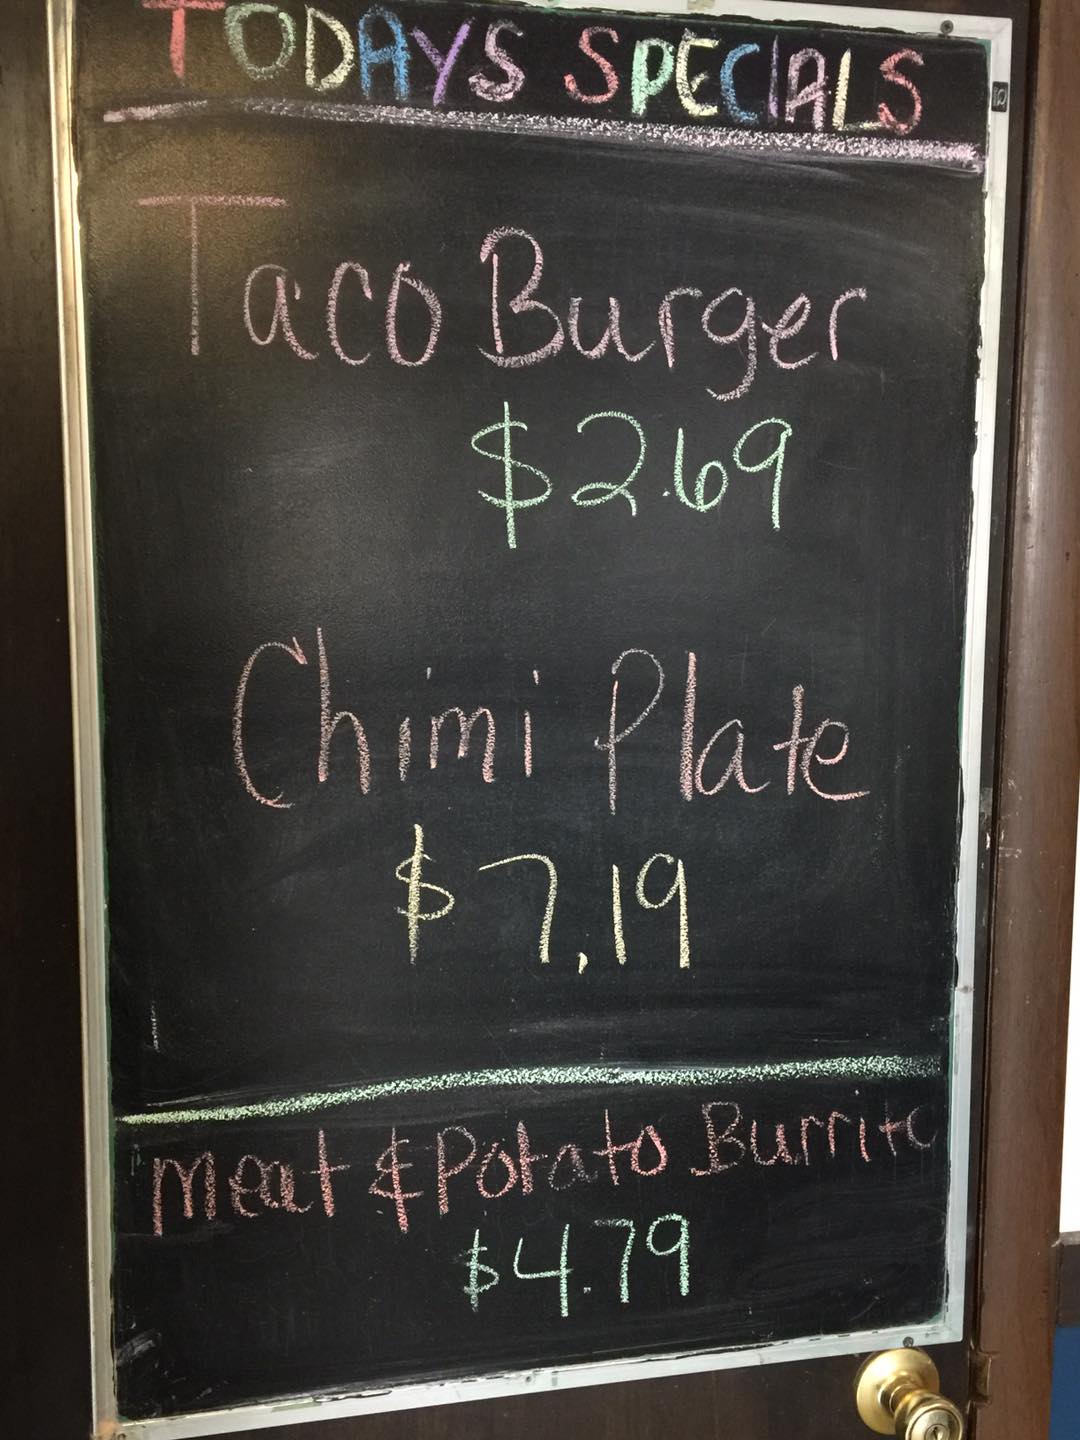 TODAYS SPECIALS
Taco Burger
$2.69
Chimi Plate
$7.19
Meat & Potato Burrito
$4.79